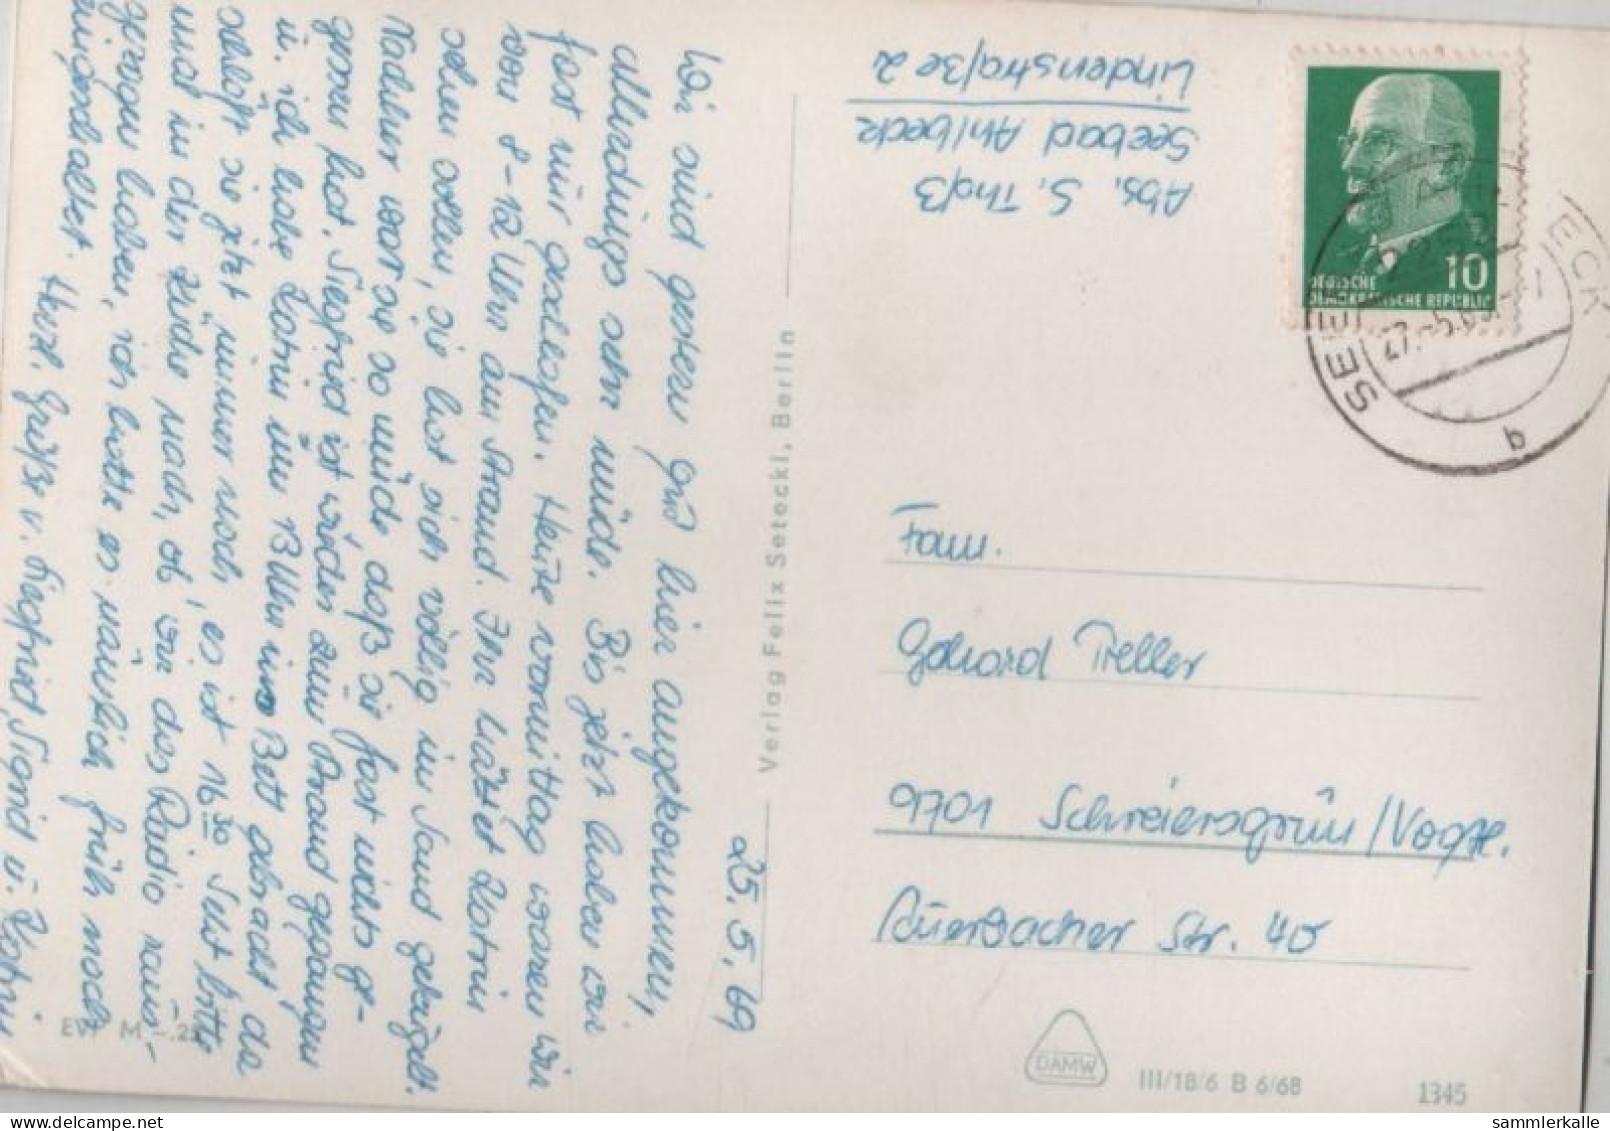 25.5.69
Wir sind gestern gut hier angekommen,
allerdings sehr müde. Bis jetzt haben wir
fast nur geschlafen. Heute vormittag waren wir
von 8-12 Uhr am Strand. Ihr hättet Katrin
sehen sollen, sie hat sich völlig im Sand gekugelt.
Nachher war sie so müde, daß sie fast nichts ge-
gessen hat. Siegfried ist wieder zum Strand gegangen
u. ich habe Katrin um 13 Uhr ins Bett gebracht da
schläft sie jetzt immer noch, es ist 16 30 Seht bitte
und in der Küche nach, ob wir das Radio raus-
gezogen haben, ich hatte es nämlich früh noch
eingeschaltet. Herzl. Grüße v. Siegfried, Sigrid u. Katrin
EVP M -.25
Verlag Felix Seteckl, Berlin
Abs. S. Thoß
Seebad Ahlbeck
Lindenstraße 2
10
DEUTSCHE
DEMOKRATISCHE REPUBLIK
SEE
ECK
27.-5.69
b
Fam.
Gerhard Treller
9701 Schreiersgrün/Vogtl.
Auerbacher Str. 40
DAMW
III/18/6 B 6/68
1345
sammlerkalle